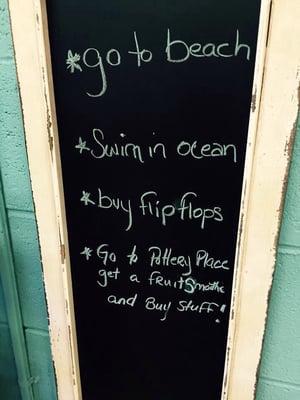 *go to beach
*Swim in ocean
*buy flip flops
*Go to Pottery Place
get a fruit Smoothe
and Buy Stuff!